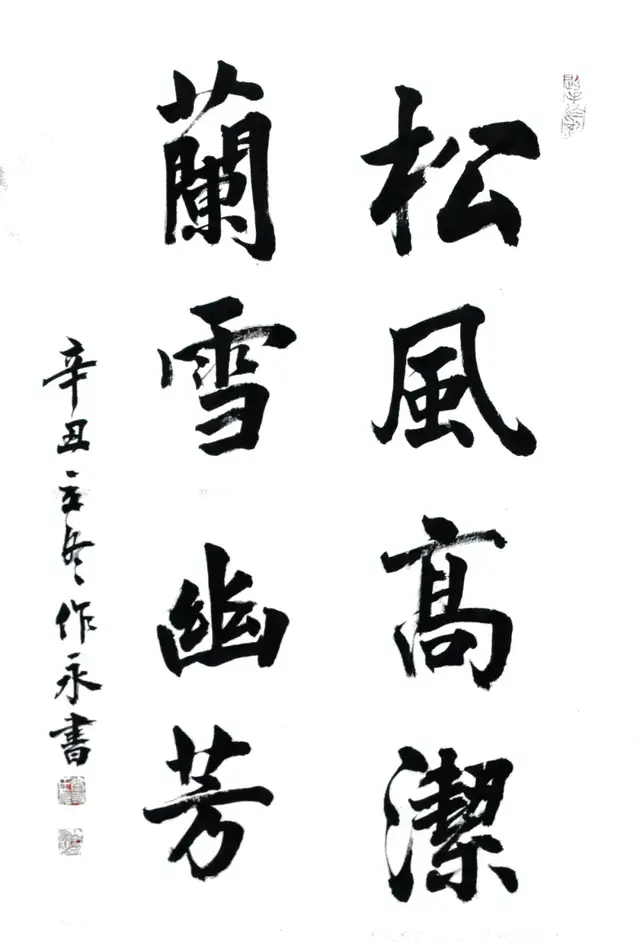 松風高潔
蘭雪幽芳
辛丑立冬作永書